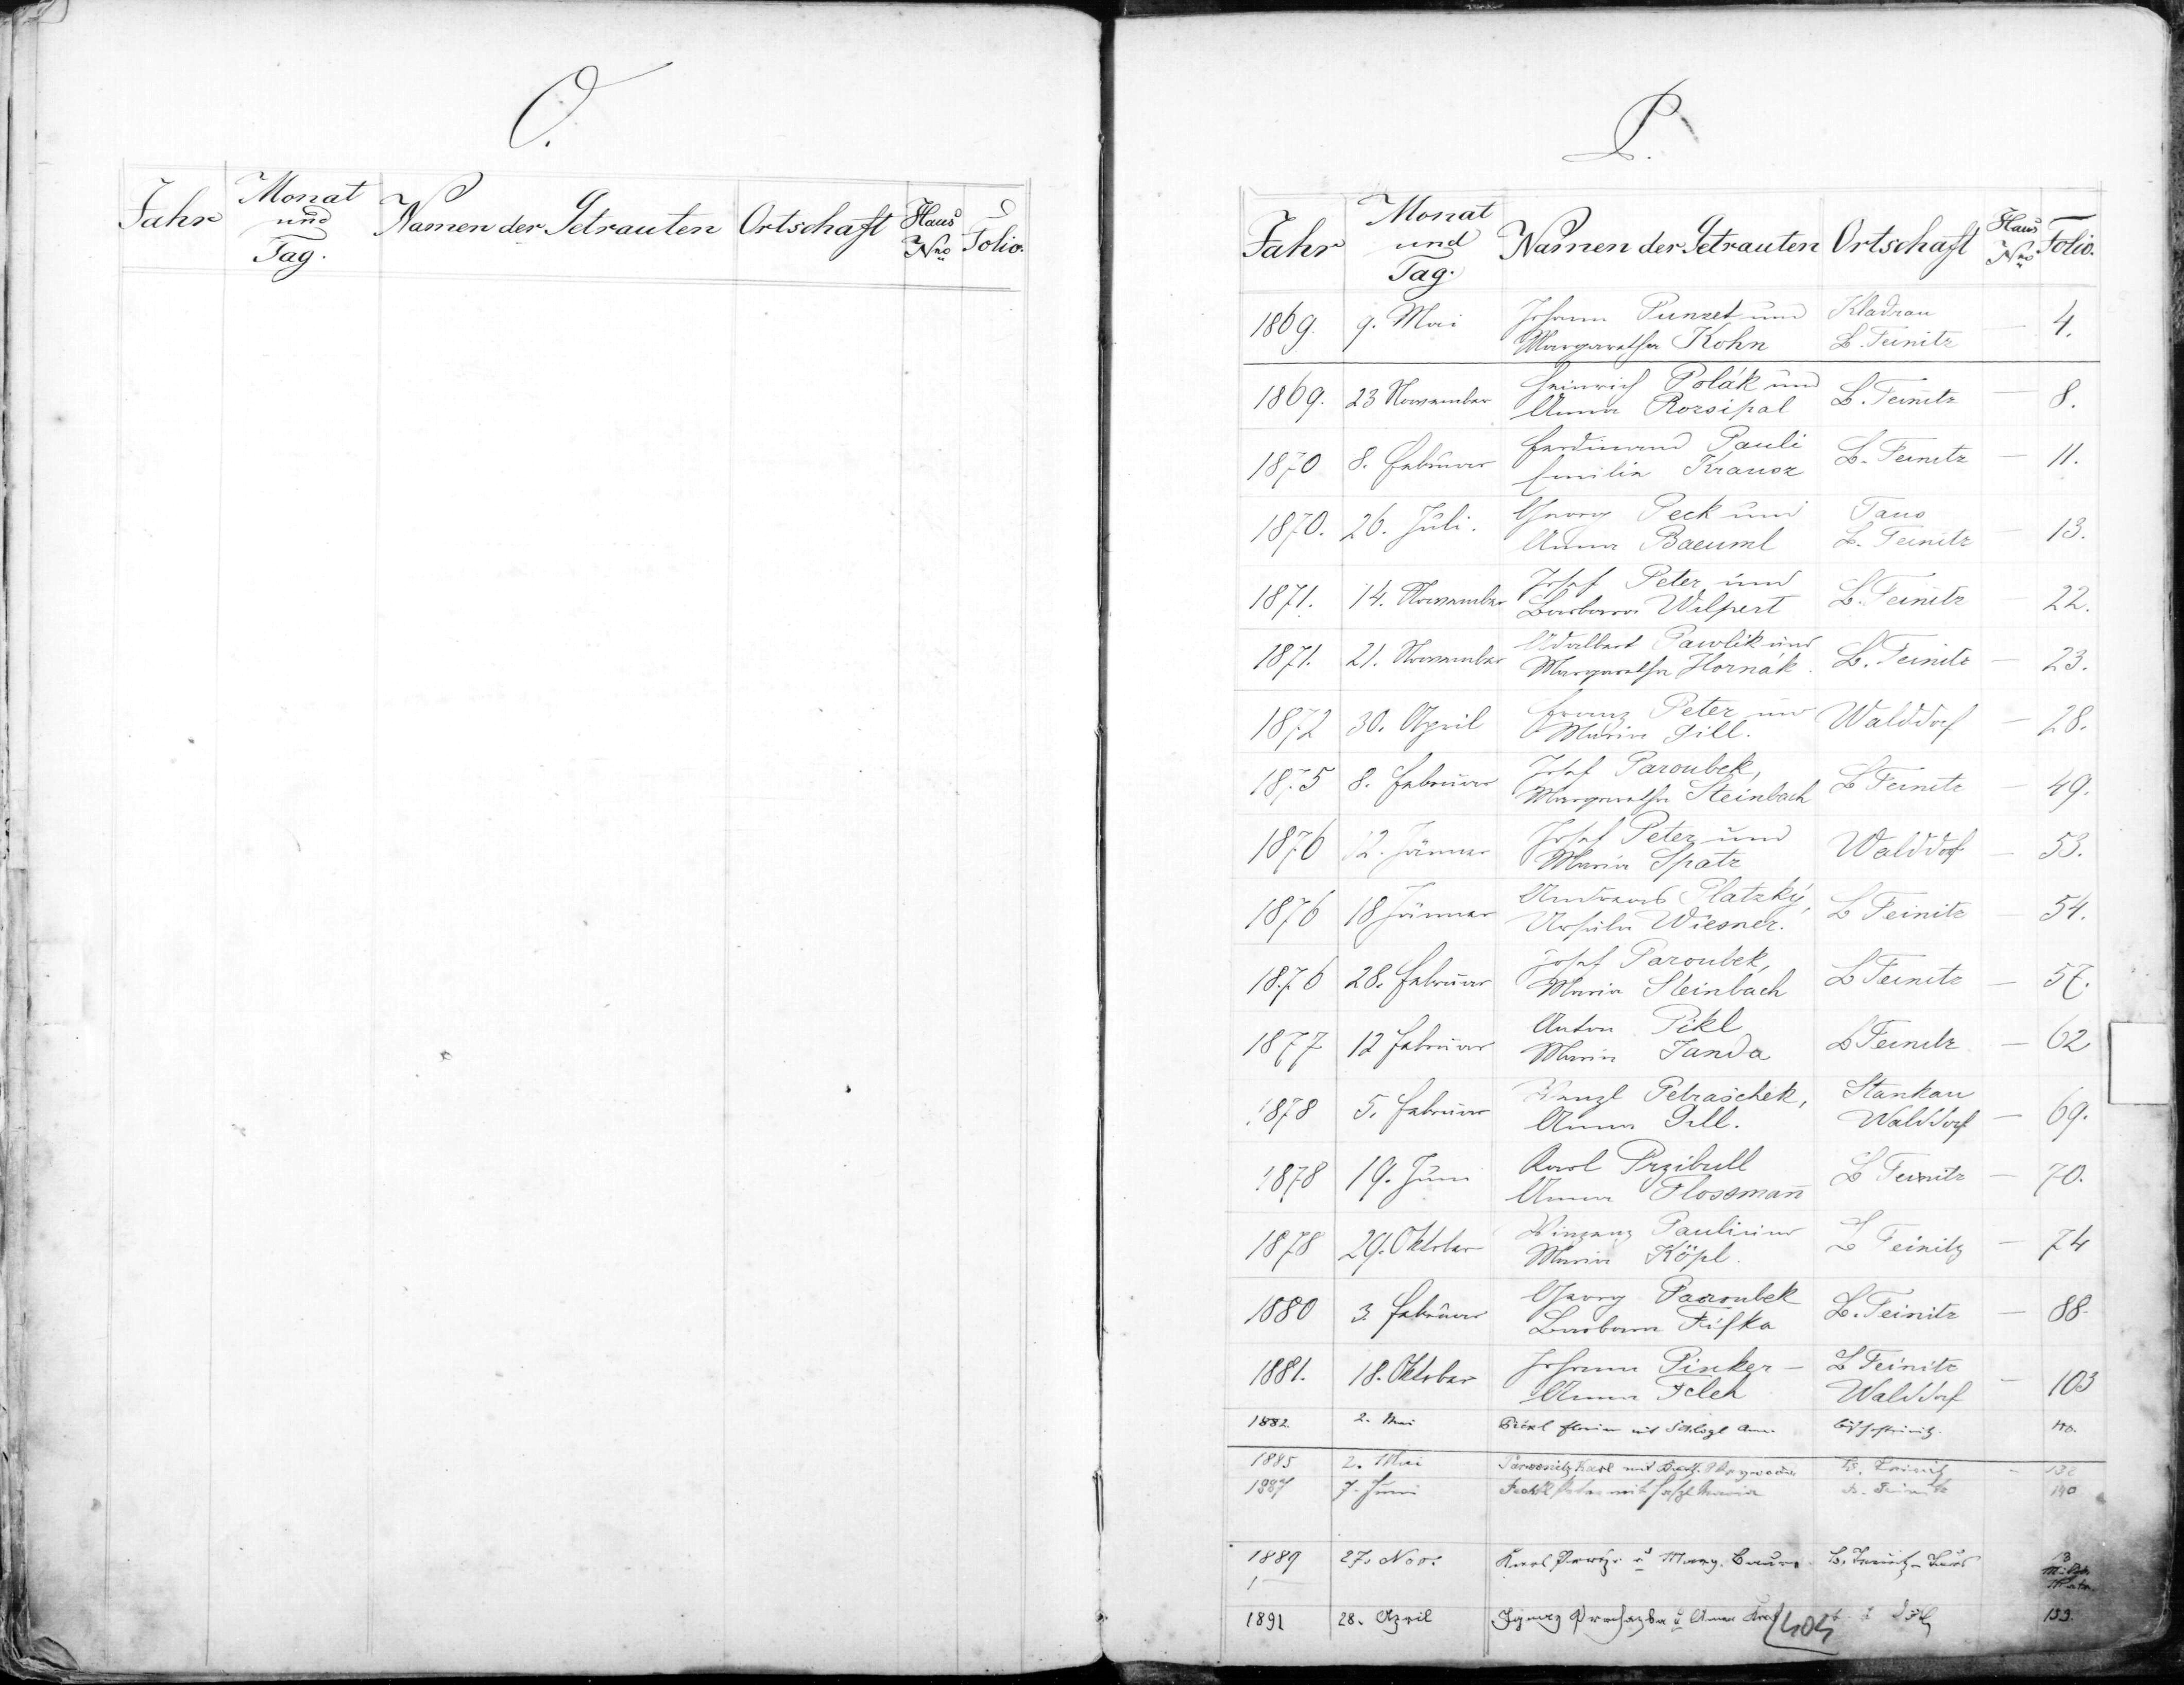 O.
Jahr Monat und Tag. Namen der Getrauten Ortschaft Haus Nro Folio.
P.
Jahr Monat und Tag. Namen der Getrauten Ortschaft Haus Nro Folio.
1869. 9. Mai Johann Punzet und Kladrau — 4.
Margaretha Kohn B. Teinitz
1869. 23 November Heinrich Polák und B. Teinitz — 8.
Anna Rozsipal
1870 8. Februar Ferdinand Pauli B. Teinitz — 11.
Emilia Krausz
1870. 26. Juli. Georg Peck und Taus — 13.
Anna Baeuml B. Teinitz
1871. 14. November Josef Peter und B. Teinitz — 22.
Barbara Wilpert
1871. 21. November Adalbert Pawlik und B. Teinitz — 23.
Margaretha Hornák.
1872 30. April Franz Peter und Walddorf — 28.
Maria Gill.
1875 8. Februar Josef Paroubek, B Teinitz — 49.
Margaretha Steinbach
1876 12. Jänner Josef Peter und Walddorf — 53.
Maria Spatz
1876 18 Jänner Andreas Platzký, B Teinitz — 54.
Ursula Wiesner.
1876 28. Februar Josef Paroubek, B Teinitz — 57.
Maria Steinbach
1877 12 Februar Anton Pikl B Teinitz — 62
Maria Janda
1878 5. Februar Wenzl Petraschek, Stankau — 69.
Anna Gill. Walddorf
1878 19. Juni Karl Przibull B Teinitz — 70.
Anna Flossmann
1878 29. Oktober Vinzenz Pauli und B Teinitz — 74
Maria Köpl.
1880 3. Februar Georg Paroubek B. Teinitz — 88.
Barbara Fifka
1881. 18. Oktober Johann Pinker — B Teinitz — 103
Anna Felch Walddorf
1882. 2. Mai Florian mit Schlögl Anna 110.
1885 2. Mai Karl mit B. Teinitz — 132
1887 7. Juni Peter mit Maria B. Teinitz 140
1889 27. Nov. Karl u Marg. B. Teinitz - Taus 13
1891 28. April Ignaz Prochazka u Anna 159.